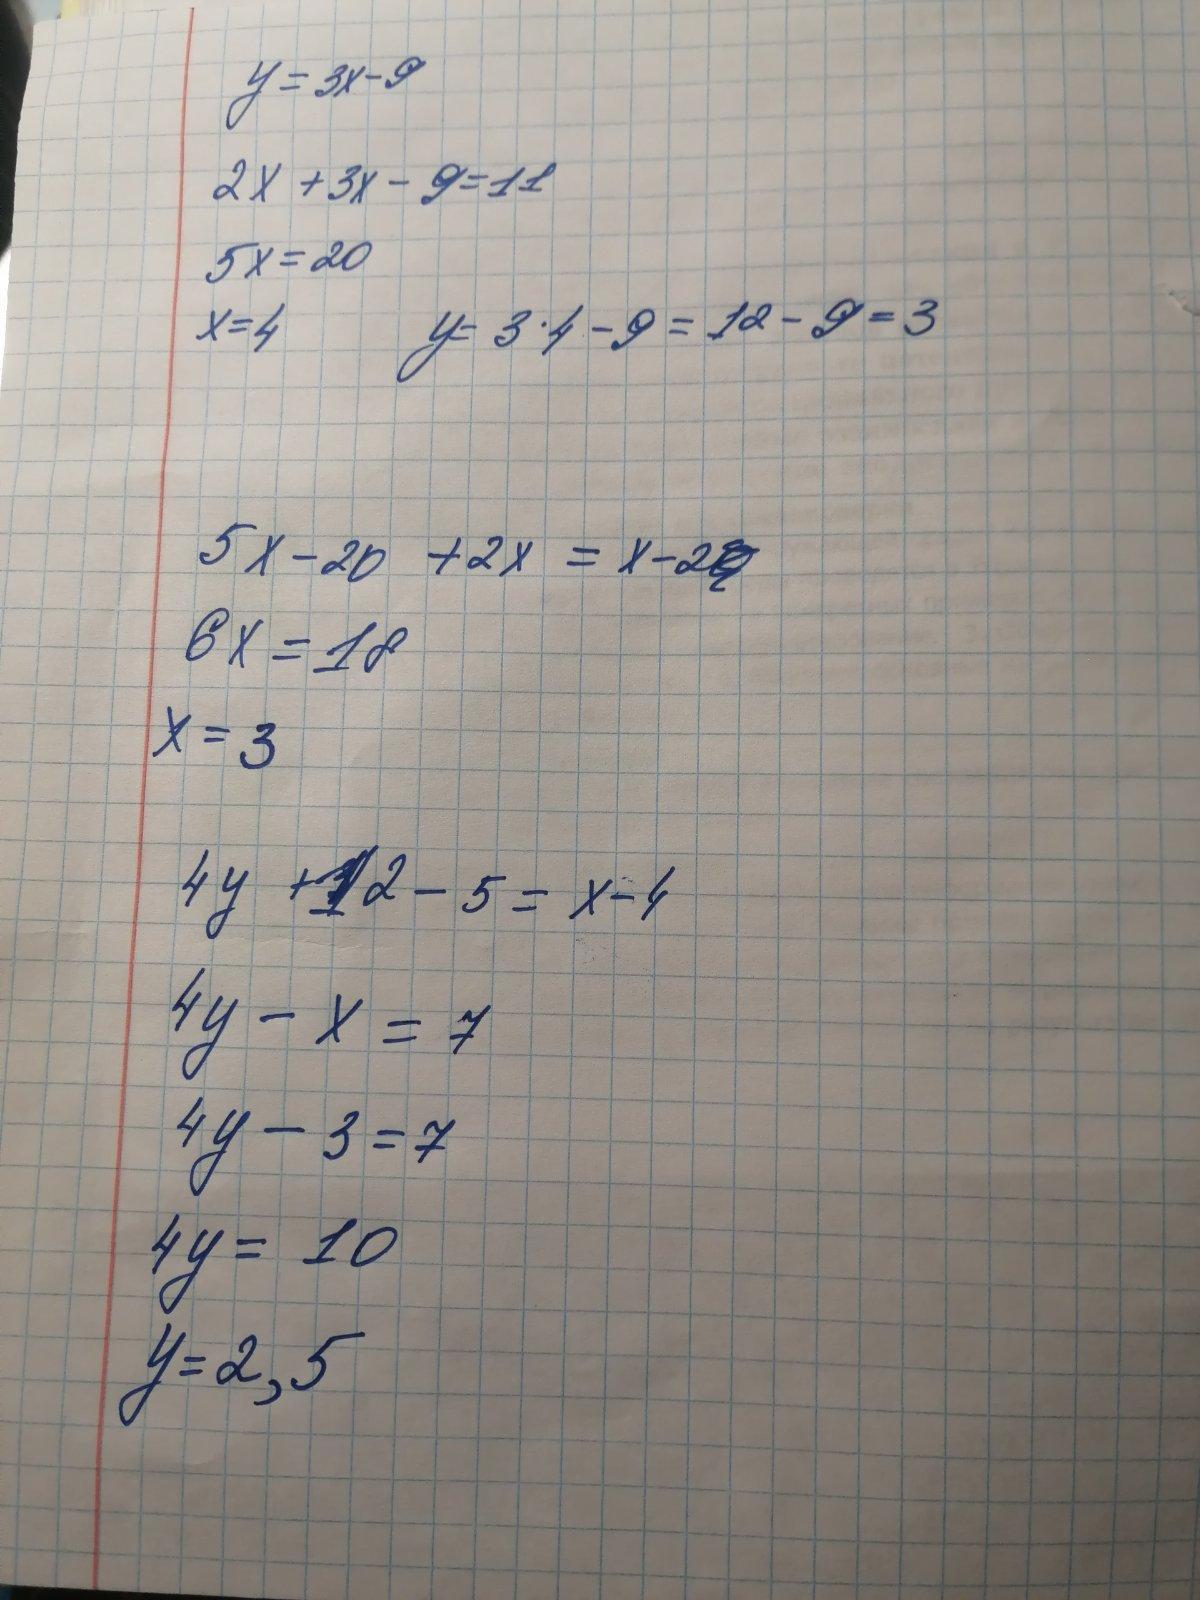 y = 3x - 9
2x + 3x - 9 = 11
5x = 20
x = 4 y = 3 · 4 - 9 = 12 - 9 = 3
5x - 20 + 2x = x - 2
6x = 18
x = 3
4y + 12 - 5 = x - 4
4y - x = 7
4y - 3 = 7
4y = 10
y = 2,5